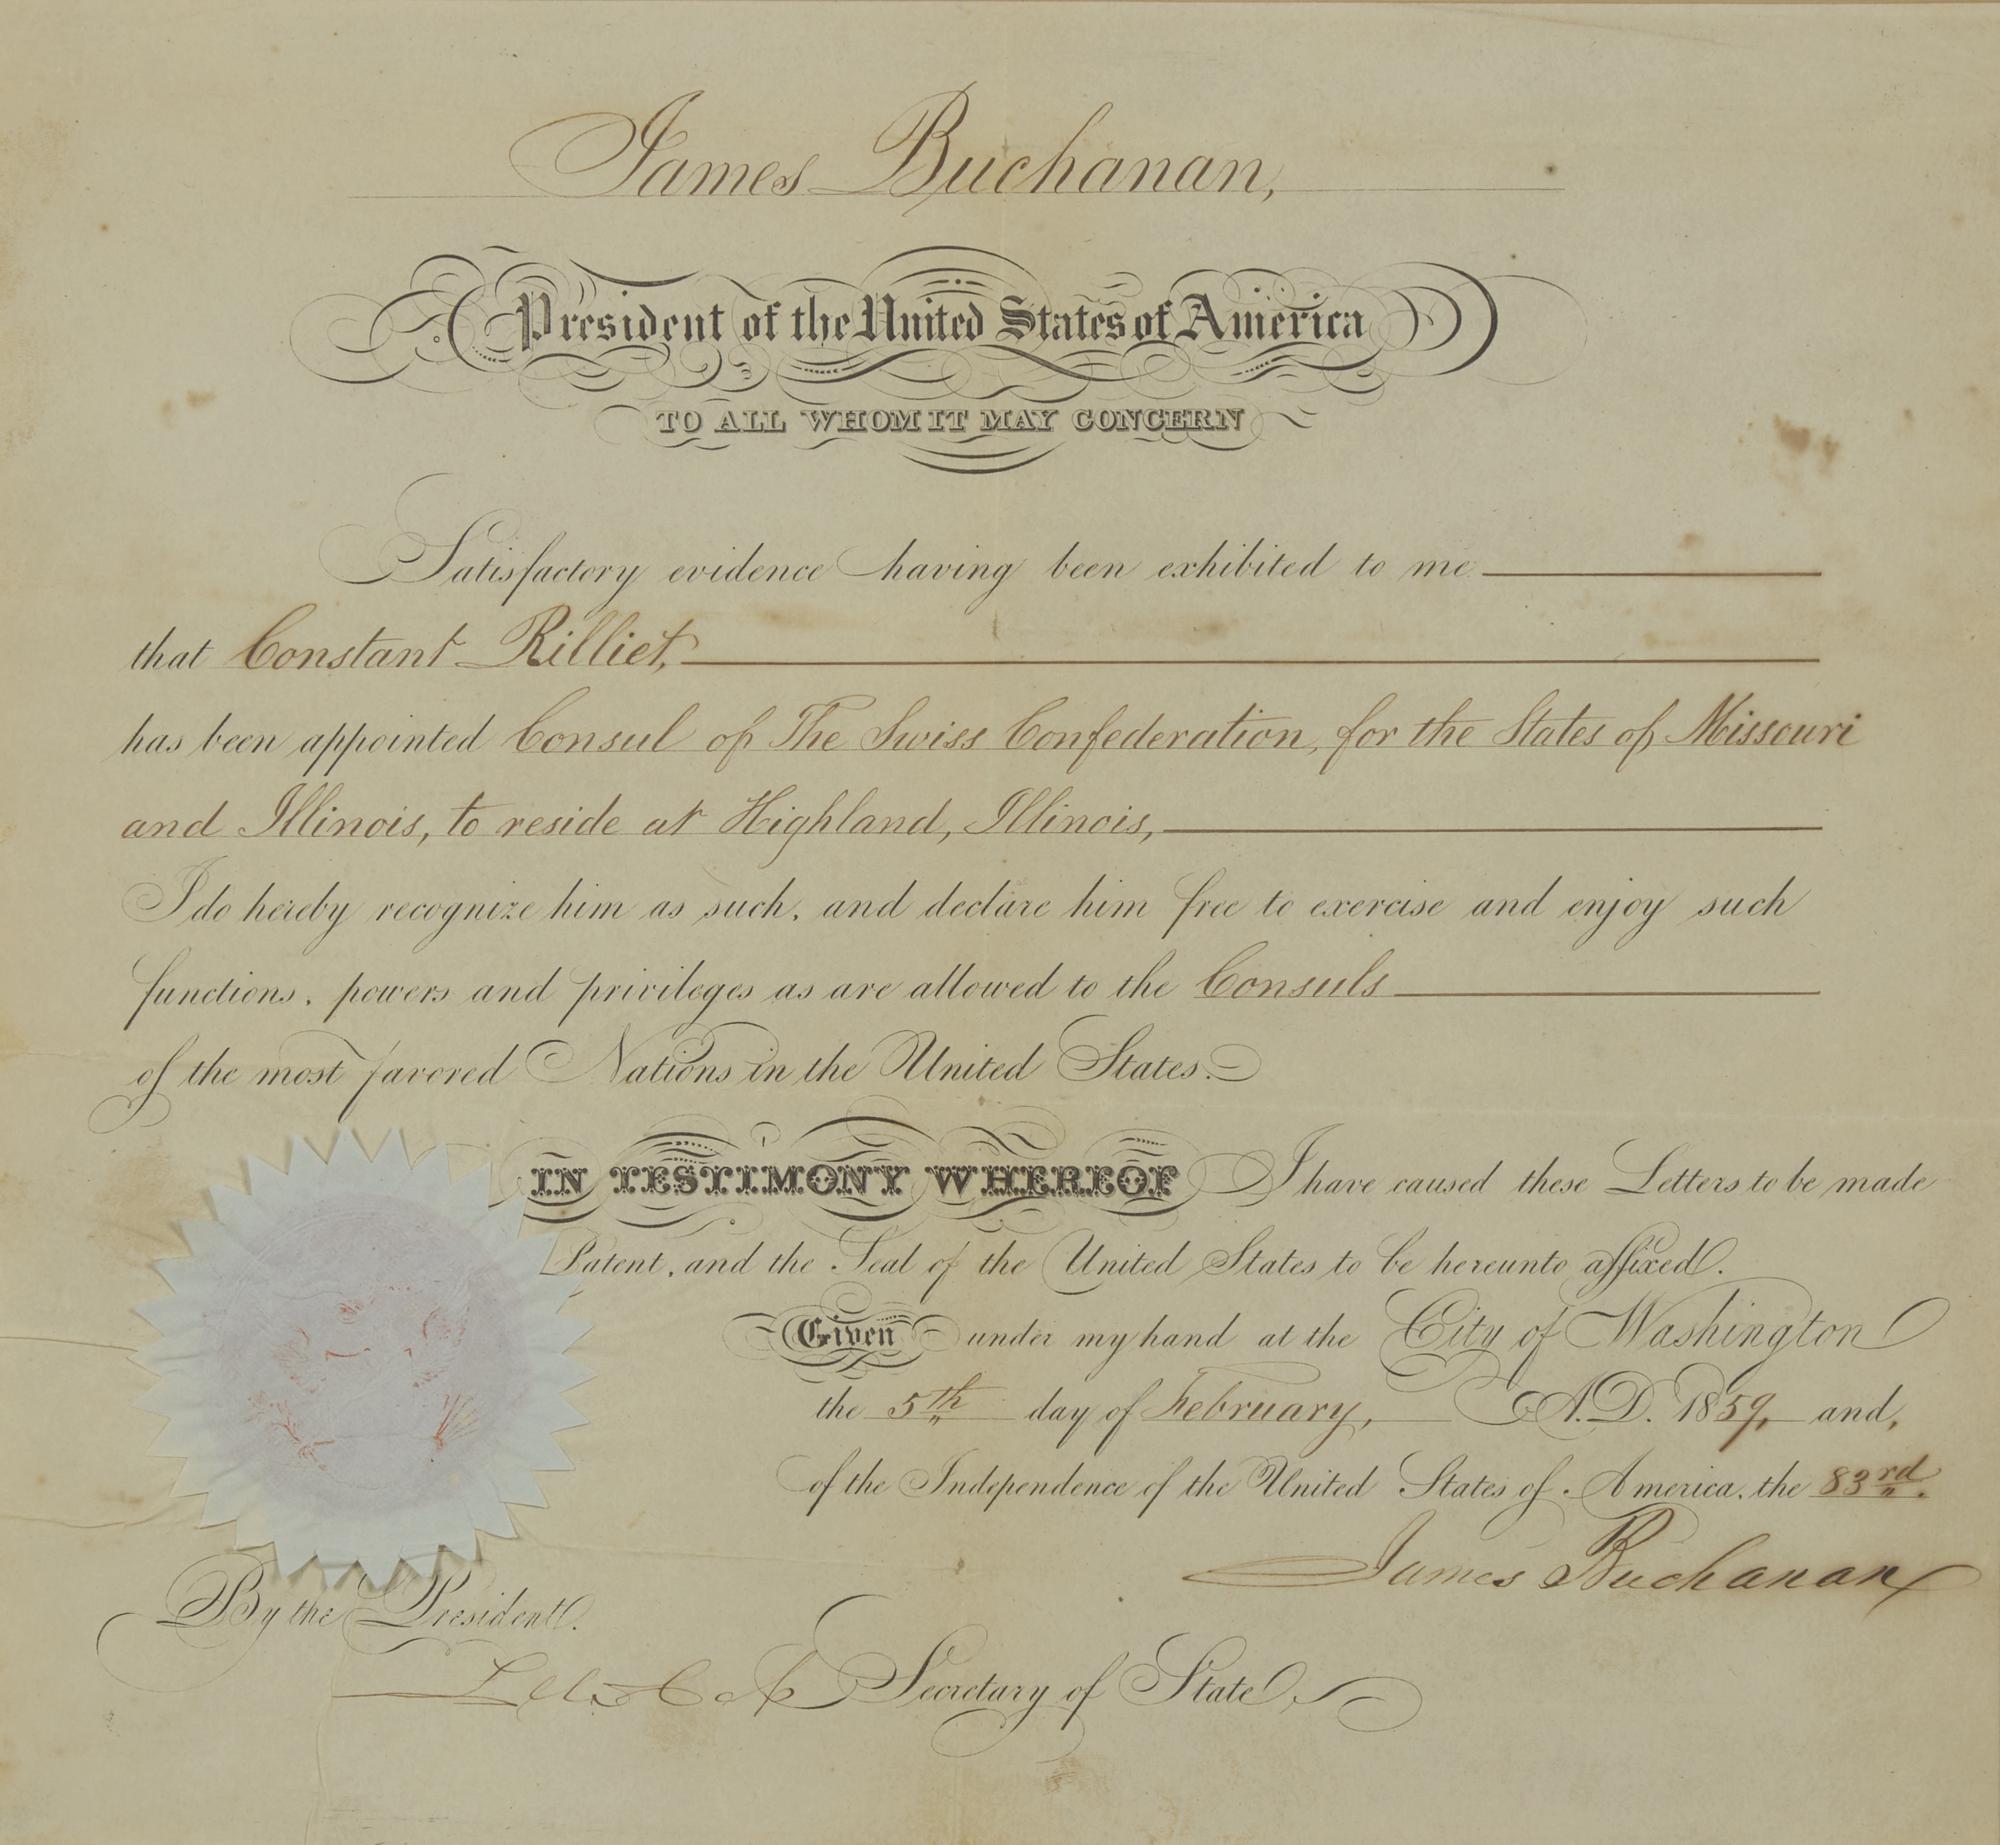 James Buchanan,
President of the United States of America
TO ALL WHOM IT MAY CONCERN
Satisfactory evidence having been exhibited to me
that Constant Rilliet,
has been appointed Consul of The Swiss Confederation, for the States of Missouri
and Illinois, to reside at Highland, Illinois,
I do hereby recognize him as such, and declare him free to exercise and enjoy such
functions, powers and privileges as are allowed to the Consuls
of the most favored Nations in the United States.
IN TESTIMONY WHEREOF I have caused these Letters to be made
Patent, and the Seal of the United States to be hereunto affixed.
Given under my hand at the City of Washington
the 5th day of February, A.D. 1859, and,
of the Independence of the United States of America, the 83rd.
James Buchanan
By the President.
Secretary of State.